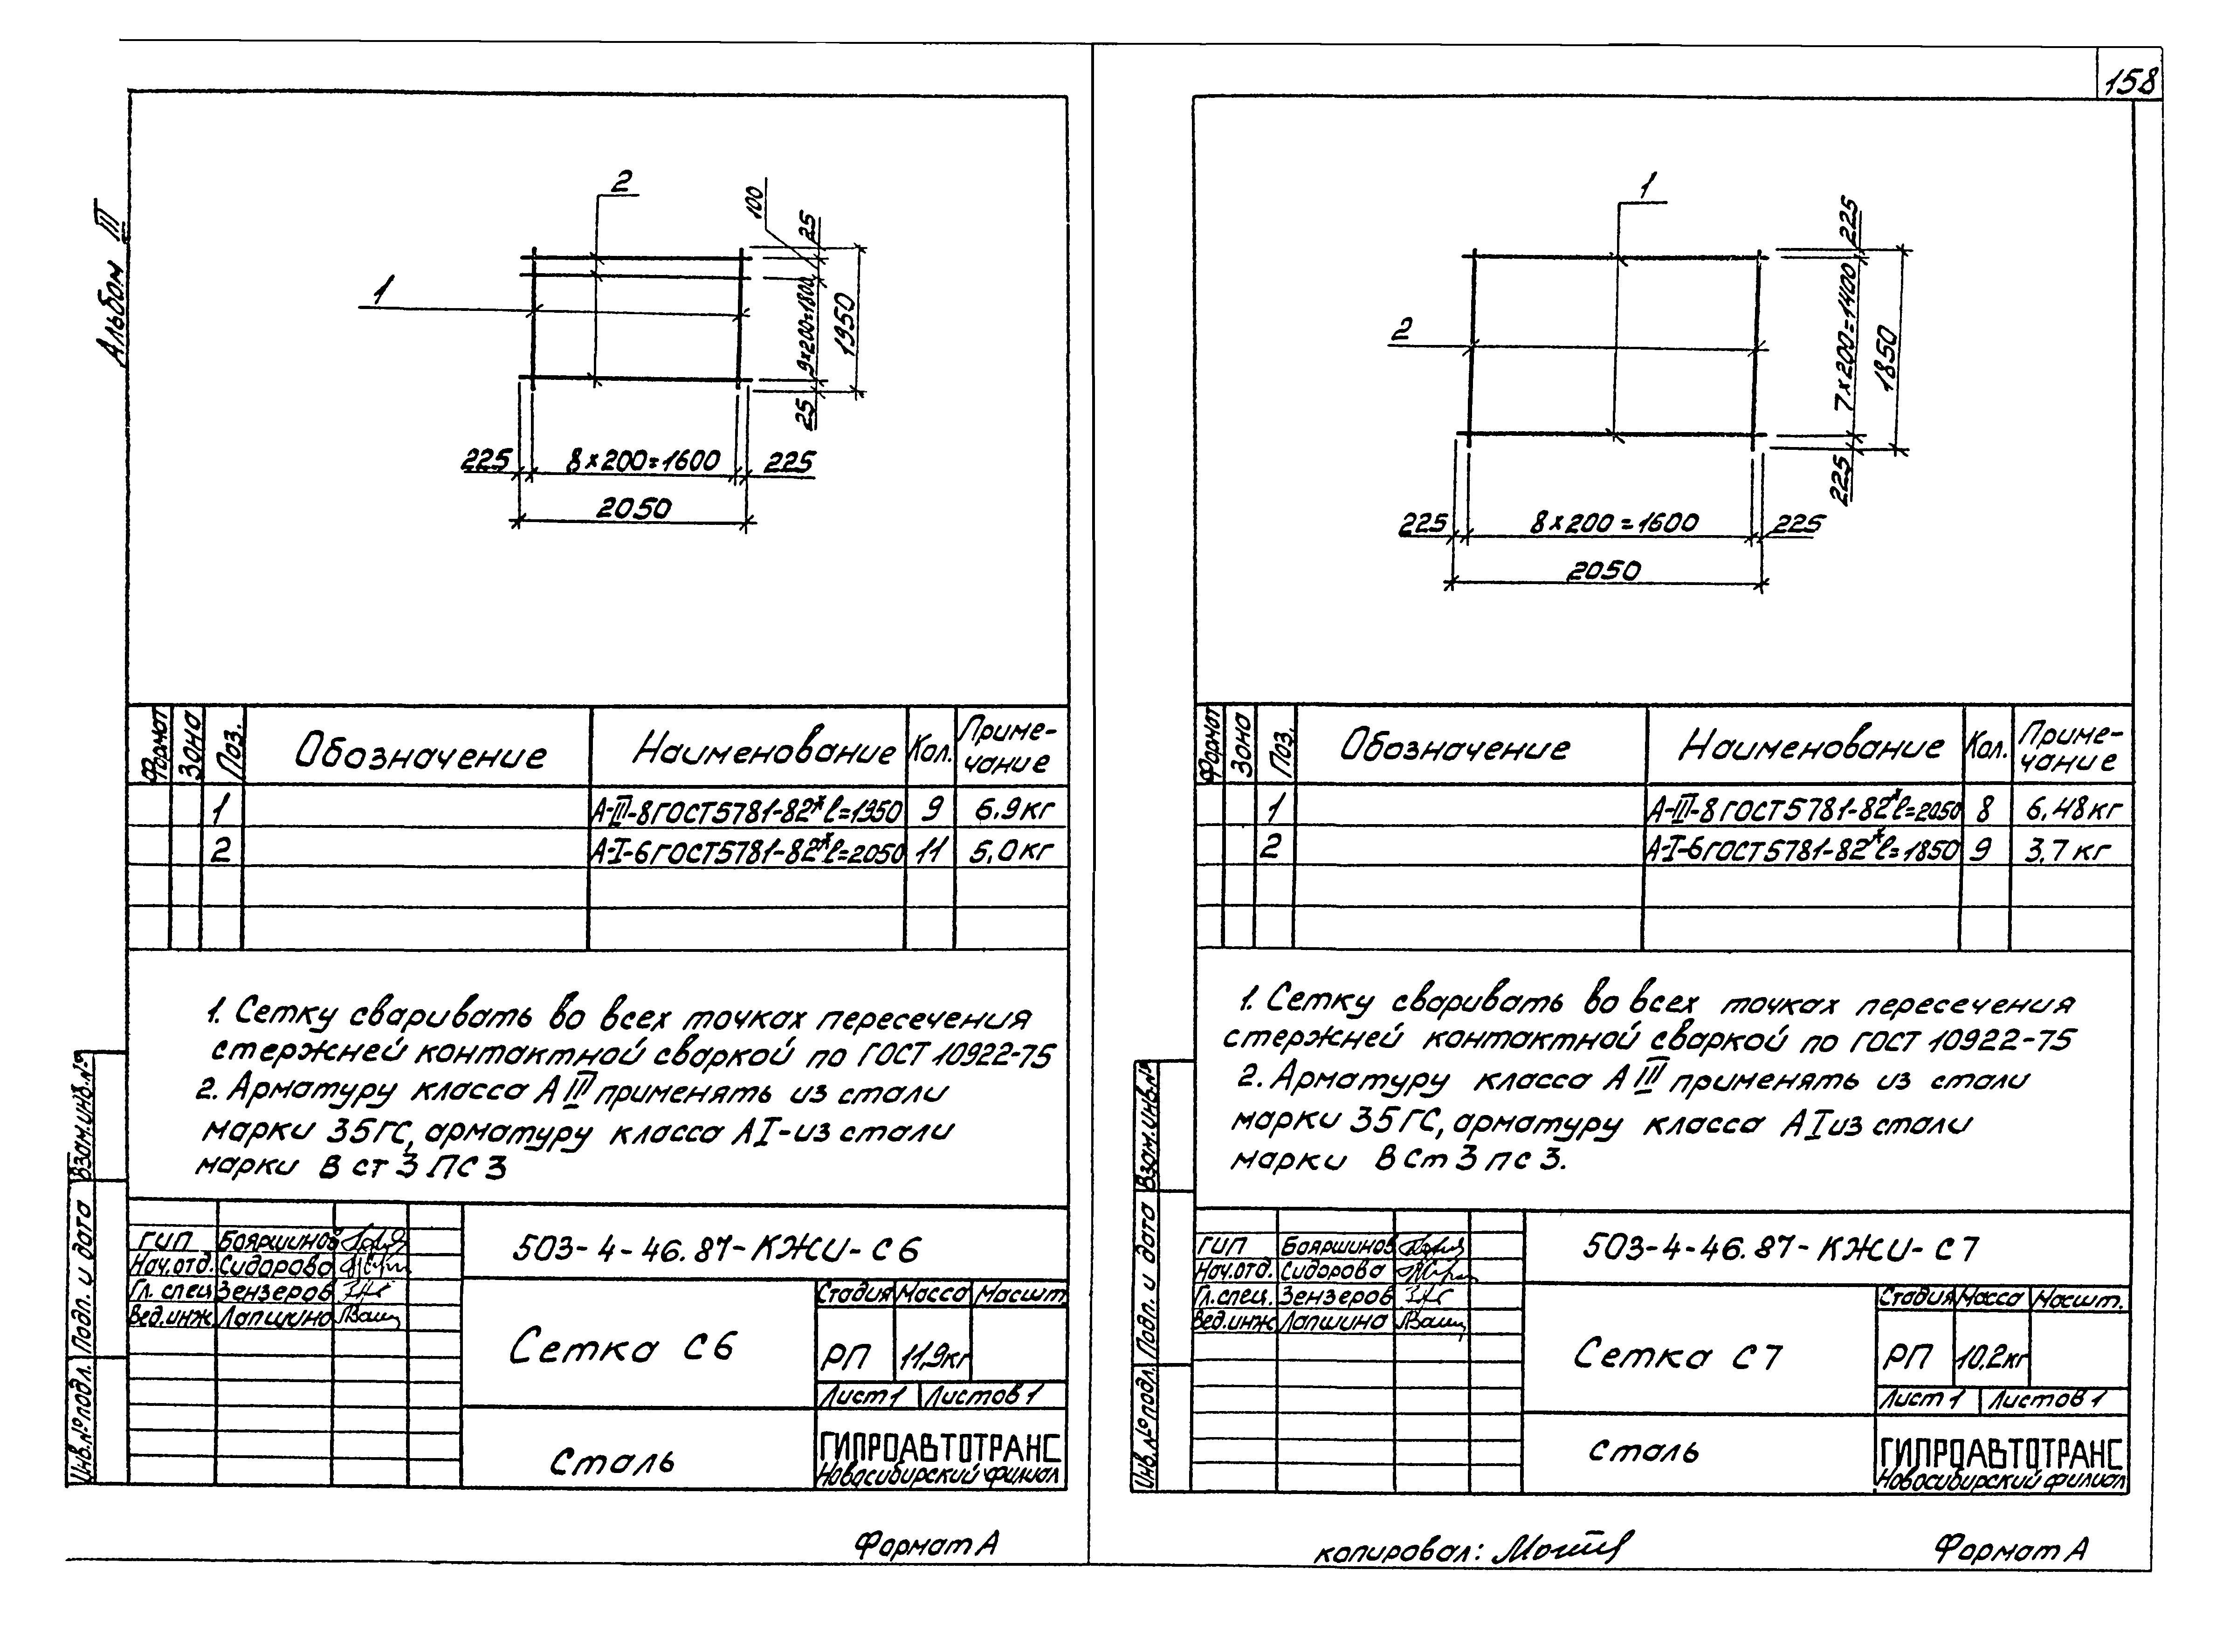 158
Альбом III
2
1
100
25
9×200=1800
1950
25
225
8×200=1600
225
2050
Формат
Зона
Поз.
Обозначение
Наименование
Кол.
Приме-
чание
1 А-III-8 ГОСТ 5781-82* ℓ=1950 9 6.9 кг
2 А-I-6 ГОСТ 5781-82* ℓ=2050 11 5,0 кг
1. Сетку сваривать во всех точках пересечения
стержней контактной сваркой по ГОСТ 10922-75
2. Арматуру класса А III применять из стали
марки 35ГС, арматуру класса АI-из стали
марки В ст 3 ПС 3
Взам.инв.№
Подп. и дата
Инв.№ подл.
ГИП Бояршинов
Нач.отд. Сидорова
Гл. спец Зензеров
Вед.инж. Лапшина
503-4-46.87-КЖИ-С6
Сетка С6
Стадия Масса Масшт.
РП 11,9кг
Лист 1 Листов 1
Сталь
ГИПРОАВТОТРАНС
Новосибирский филиал
Формат А
1
2
225
7×200=1400
1850
225
225
8×200=1600
225
2050
Формат
Зона
Поз.
Обозначение
Наименование
Кол.
Приме-
чание
1 А-III-8 ГОСТ 5781-82* ℓ=2050 8 6,48 кг
2 А-I-6 ГОСТ 5781-82* ℓ=1850 9 3,7 кг
1. Сетку сваривать во всех точках пересечения
стержней контактной сваркой по ГОСТ 10922-75
2. Арматуру класса А III применять из стали
марки 35ГС, арматуру класса АI из стали
марки В Ст 3 пс 3.
Взам.инв.№
Подп. и дата
Инв.№ подл.
ГИП Бояршинов
Нач.отд. Сидорова
Гл.спец. Зензеров
Вед.инж Лапшина
503-4-46.87-КЖИ-С7
Сетка С7
Стадия Масса Масшт.
РП 10,2кг
Лист 1 Листов 1
сталь
ГИПРОАВТОТРАНС
Новосибирский филиал
копировал:
Формат А